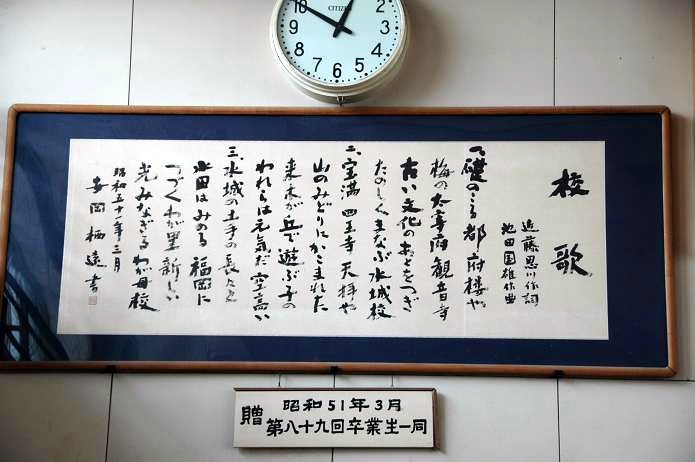 CITIZEN
12
1
2
3
4
5
6
7
8
9
10
校歌
近藤思川作詞
池田国雄作曲
一、礎のこる都府楼や
梅の太宰府観音寺
古い文化のあとをつぎ
たのしくまなぶ水城校
二、宝満四王寺天拝や
山のみどりにかこまれた
来木が丘で遊ぶ子の
われらは元気だ空高い
三、水城の土手の長々と
水田はみのる福岡に
つづくわが里新しい
光みなぎるわが母校
昭和五十一年三月
安岡栖遠書
贈
昭和51年3月
第八十九回卒業生一同